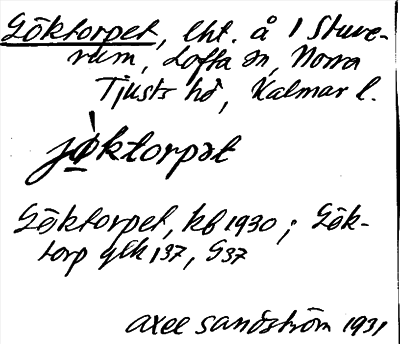 Göktorpet, lht. å 1 Stuve-
rum, Lofta sn, Norra
Tjusts hd, Kalmar l.
jø̀ktorpət
Göktorpet, kb 1930; Gök-
torp glk 137, G37
Axel Sandström 1931